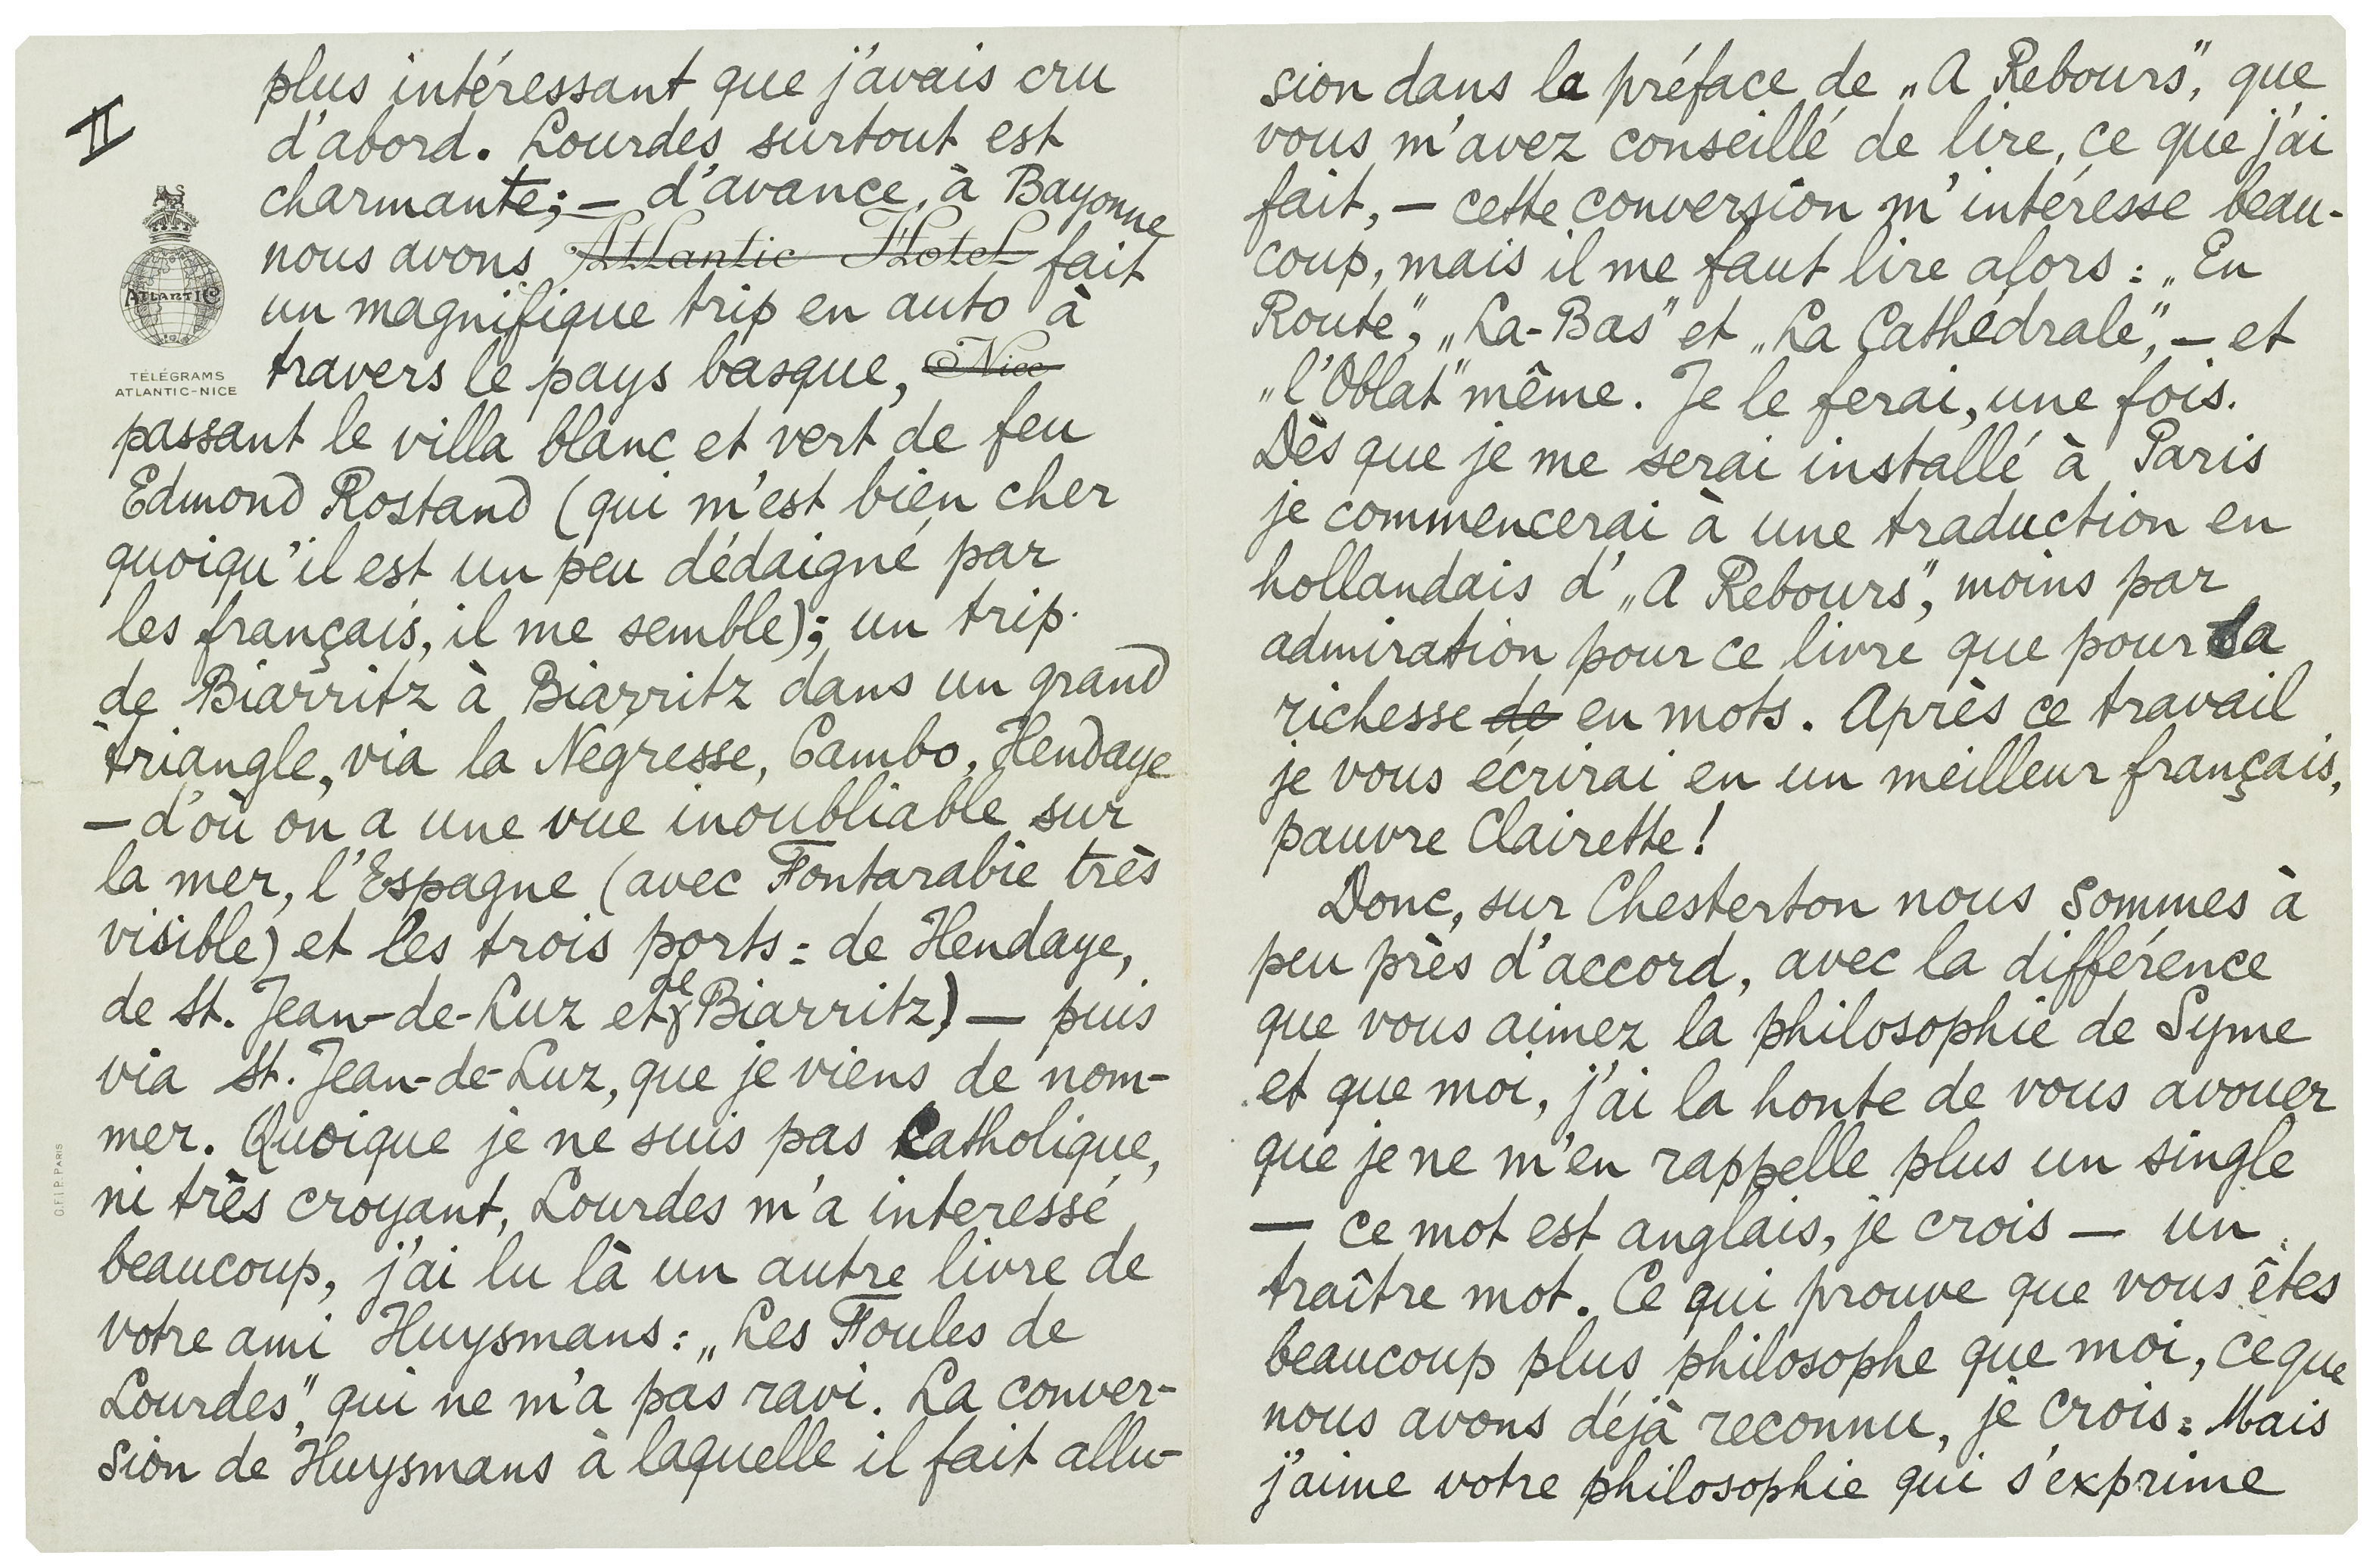 II
plus intéressant que j'avais cru
d'abord. Lourdes surtout est
charmante; — d'avance, à Bayonne
nous avons Atlantic Hotel fait
un magnifique trip en auto à
travers le pays basque, Nice
passant le villa blanc et vert de feu
Edmond Rostand (qui m'est bien cher
quoiqu'il est un peu dédaigné par
les français, il me semble); un trip
de Biarritz à Biarritz dans un grand
triangle, via la Négresse, Cambo, Hendaye
— d'où on a une vue inoubliable sur
la mer, l'Espagne (avec Fontarabie très
visible) et les trois ports: de Hendaye,
de St. Jean-de-Luz et de Biarritz) — puis
via St. Jean-de-Luz, que je viens de nom-
mer. Quoique je ne suis pas catholique,
ni très croyant, Lourdes m'a interessé
beaucoup, j'ai lu là un autre livre de
votre ami Huysmans: „Les Foules de
Lourdes", qui ne m'a pas ravi. La conver-
sion de Huysmans à laquelle il fait allu-
ATLANTIC
TÉLÉGRAMS
ATLANTIC-NICE
O.F.I.P. PARIS
sion dans la préface de „A Rebours", que
vous m'avez conseillé de lire, ce que j'ai
fait, — cette conversion m'intéresse beau-
coup, mais il me faut lire alors: „En
Route", „La-Bas" et „La Cathédrale", — et
„l'Oblat" même. Je le ferai, une fois.
Dès que je me serai installé à Paris
je commencerai à une traduction en
hollandais d' „A Rebours", moins par
admiration pour ce livre que pour sa
richesse de en mots. Après ce travail
je vous écrirai en un meilleur français,
pauvre Clairette!
Donc, sur Chesterton nous sommes à
peu près d'accord, avec la différence
que vous aimez la philosophie de Syme
et que moi, j'ai la honte de vous avouer
que je ne m'en rappelle plus un single
— ce mot est anglais, je crois — un
traître mot. Ce qui prouve que vous êtes
beaucoup plus philosophe que moi, ce que
nous avons déjà reconnu, je crois. Mais
j'aime votre philosophie qui s'exprime